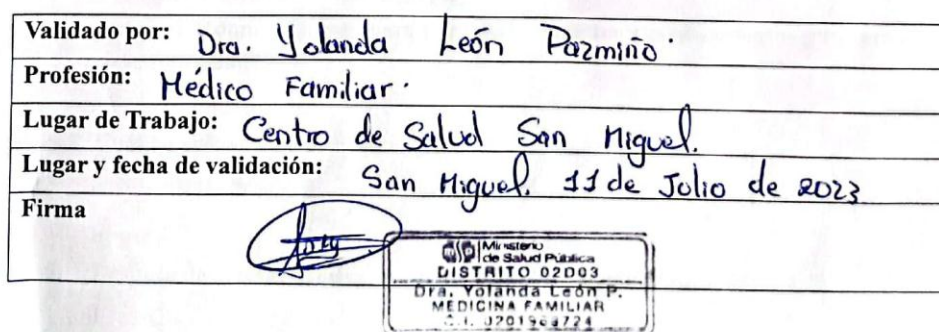 Validado por: Dra. Yolanda León Pazmiño.
Profesión: Médico Familiar.
Lugar de Trabajo: Centro de Salud San Miguel.
Lugar y fecha de validación: San Miguel, 11 de Julio de 2023
Firma
Ministerio
de Salud Pública
DISTRITO 02D03
Dra. Yolanda León P.
MEDICINA FAMILIAR
C.I.